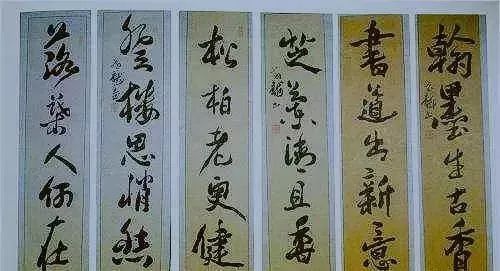 翰墨生古香
書道出新意
芝蘭清且香
松柏老更健
登楼思悄然
落葉人何在